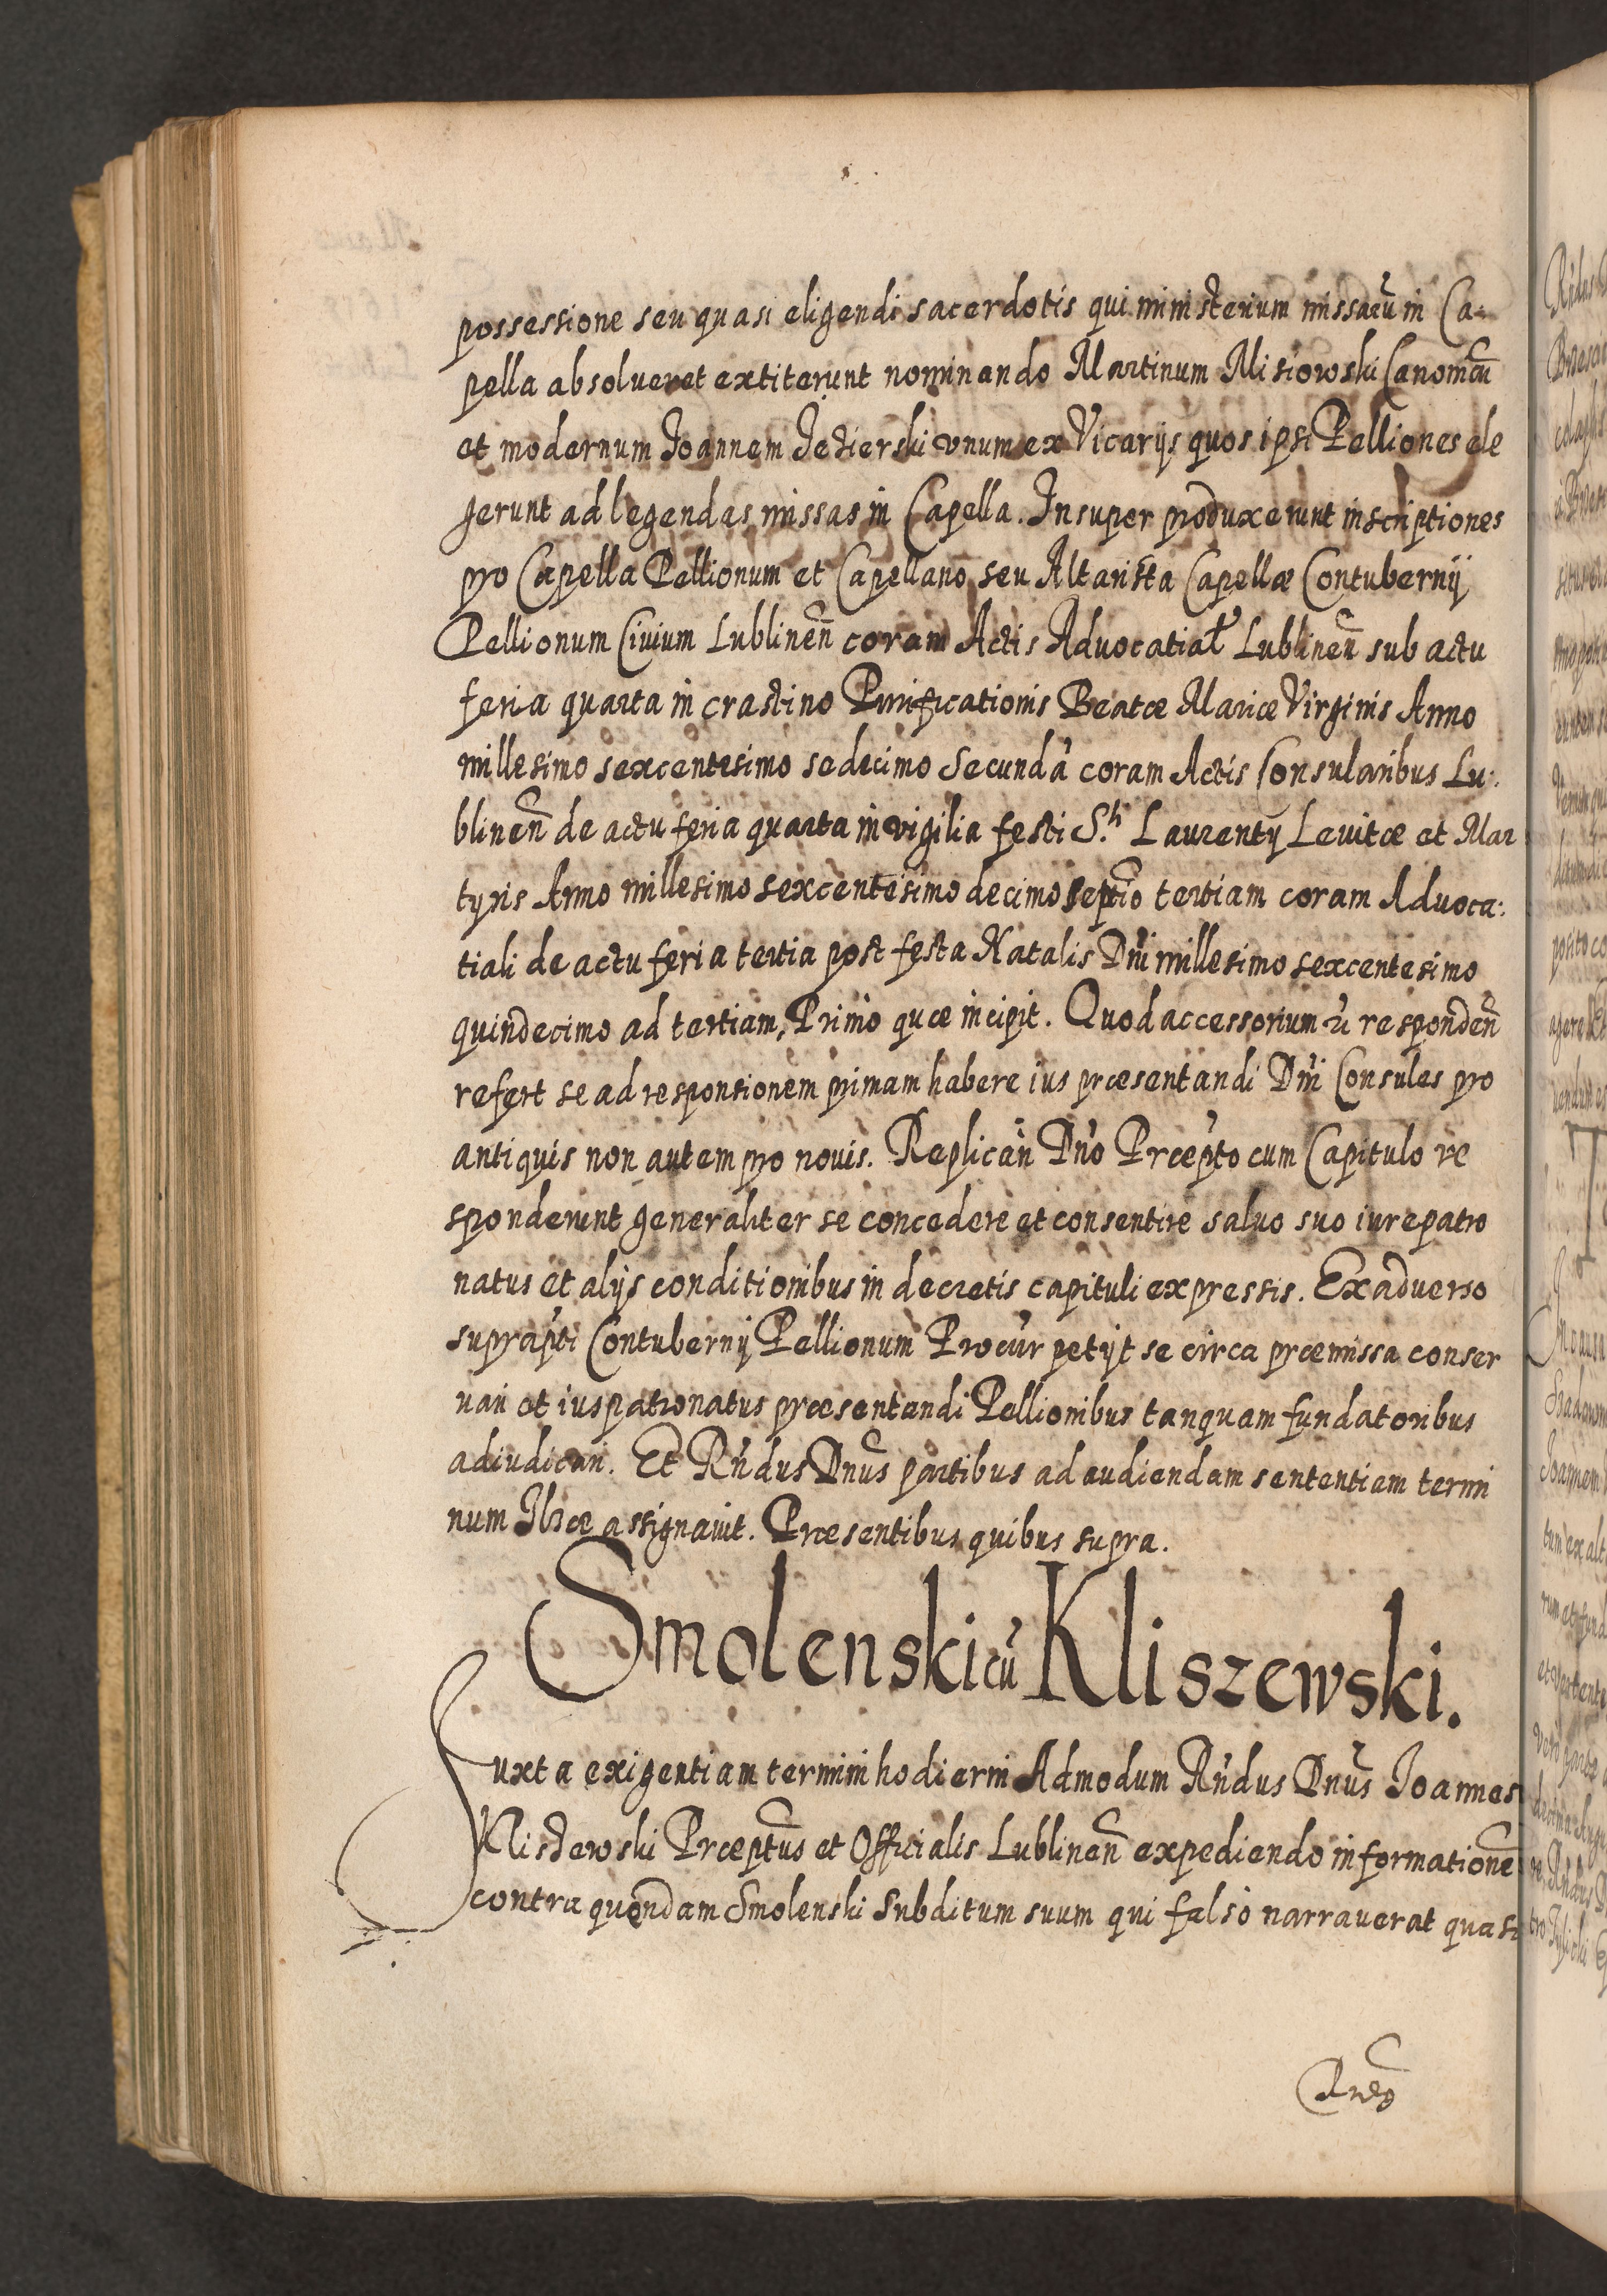 possessione seu quasi eligendi sacerdotis qui ministerium missarũ in Ca-
pella absolueret extiterunt nominando Martinum Misiowski Canonicũ
et modernum Joannem Jezierski vnum ex Vicarijs quos ipsi Pelliones ele
gerunt ad legendas missas in Capella. Insuper produxerunt inscriptiones
pro Capella Pellionum et Capellano seu Altarista Capellæ Contubernij
Pellionum Civium Lublineñ coram Actis Aduocatiał Lublineñ sub actu
feria quarta in crastino Purificationis Beatæ Mariæ Virginis Anno
millesimo sexcentesimo sedecimo Secundã coram Actis Consularibus Lu:
blineñ de actu feria quarta in vigilia festi S.ti Laurentij Leuitæ et Mar
tyris Anno millesimo sexcentesimo decimo septĩo tertiam coram Aduoca:
tiali de actu feria tertia post festa Natalis Dñi millesimo sexcentesimo
quindecimo ad tertiam, Primò quæ incipit. Quod accessorium respondeñ
refert se ad responsionem primam habere ius præsentandi Dñi Consules pro
antiquis non autem pro nouis. Replicañ Dño Præpto cum Capitulo re
sponderunt generaliter se concedere et consentire saluo suo iure patro
natus et alijs conditionibus in decretis capituli expressis. Ex aduerso
suprapti Contubernij Pellionum Procur petijt se circa præmissa conser
uari et ius patronatus præsentandi Pellionibus tanquam fundatoribus
adiudicari. Et Rñdus Dñus partibus ad audiendam sententiam termi
num assignauit. Præsentibus quibus supra.
Smolenski cũ Kliszewski.
Juxta exigentiam termini hodierni Admodum Rñdus Dñus Joannes
Klisżewski Præptus et Officialis Lublineñ expediendo informationẽ
contra quendam Smolenski Subditum suum qui falsò narrauerat quasi